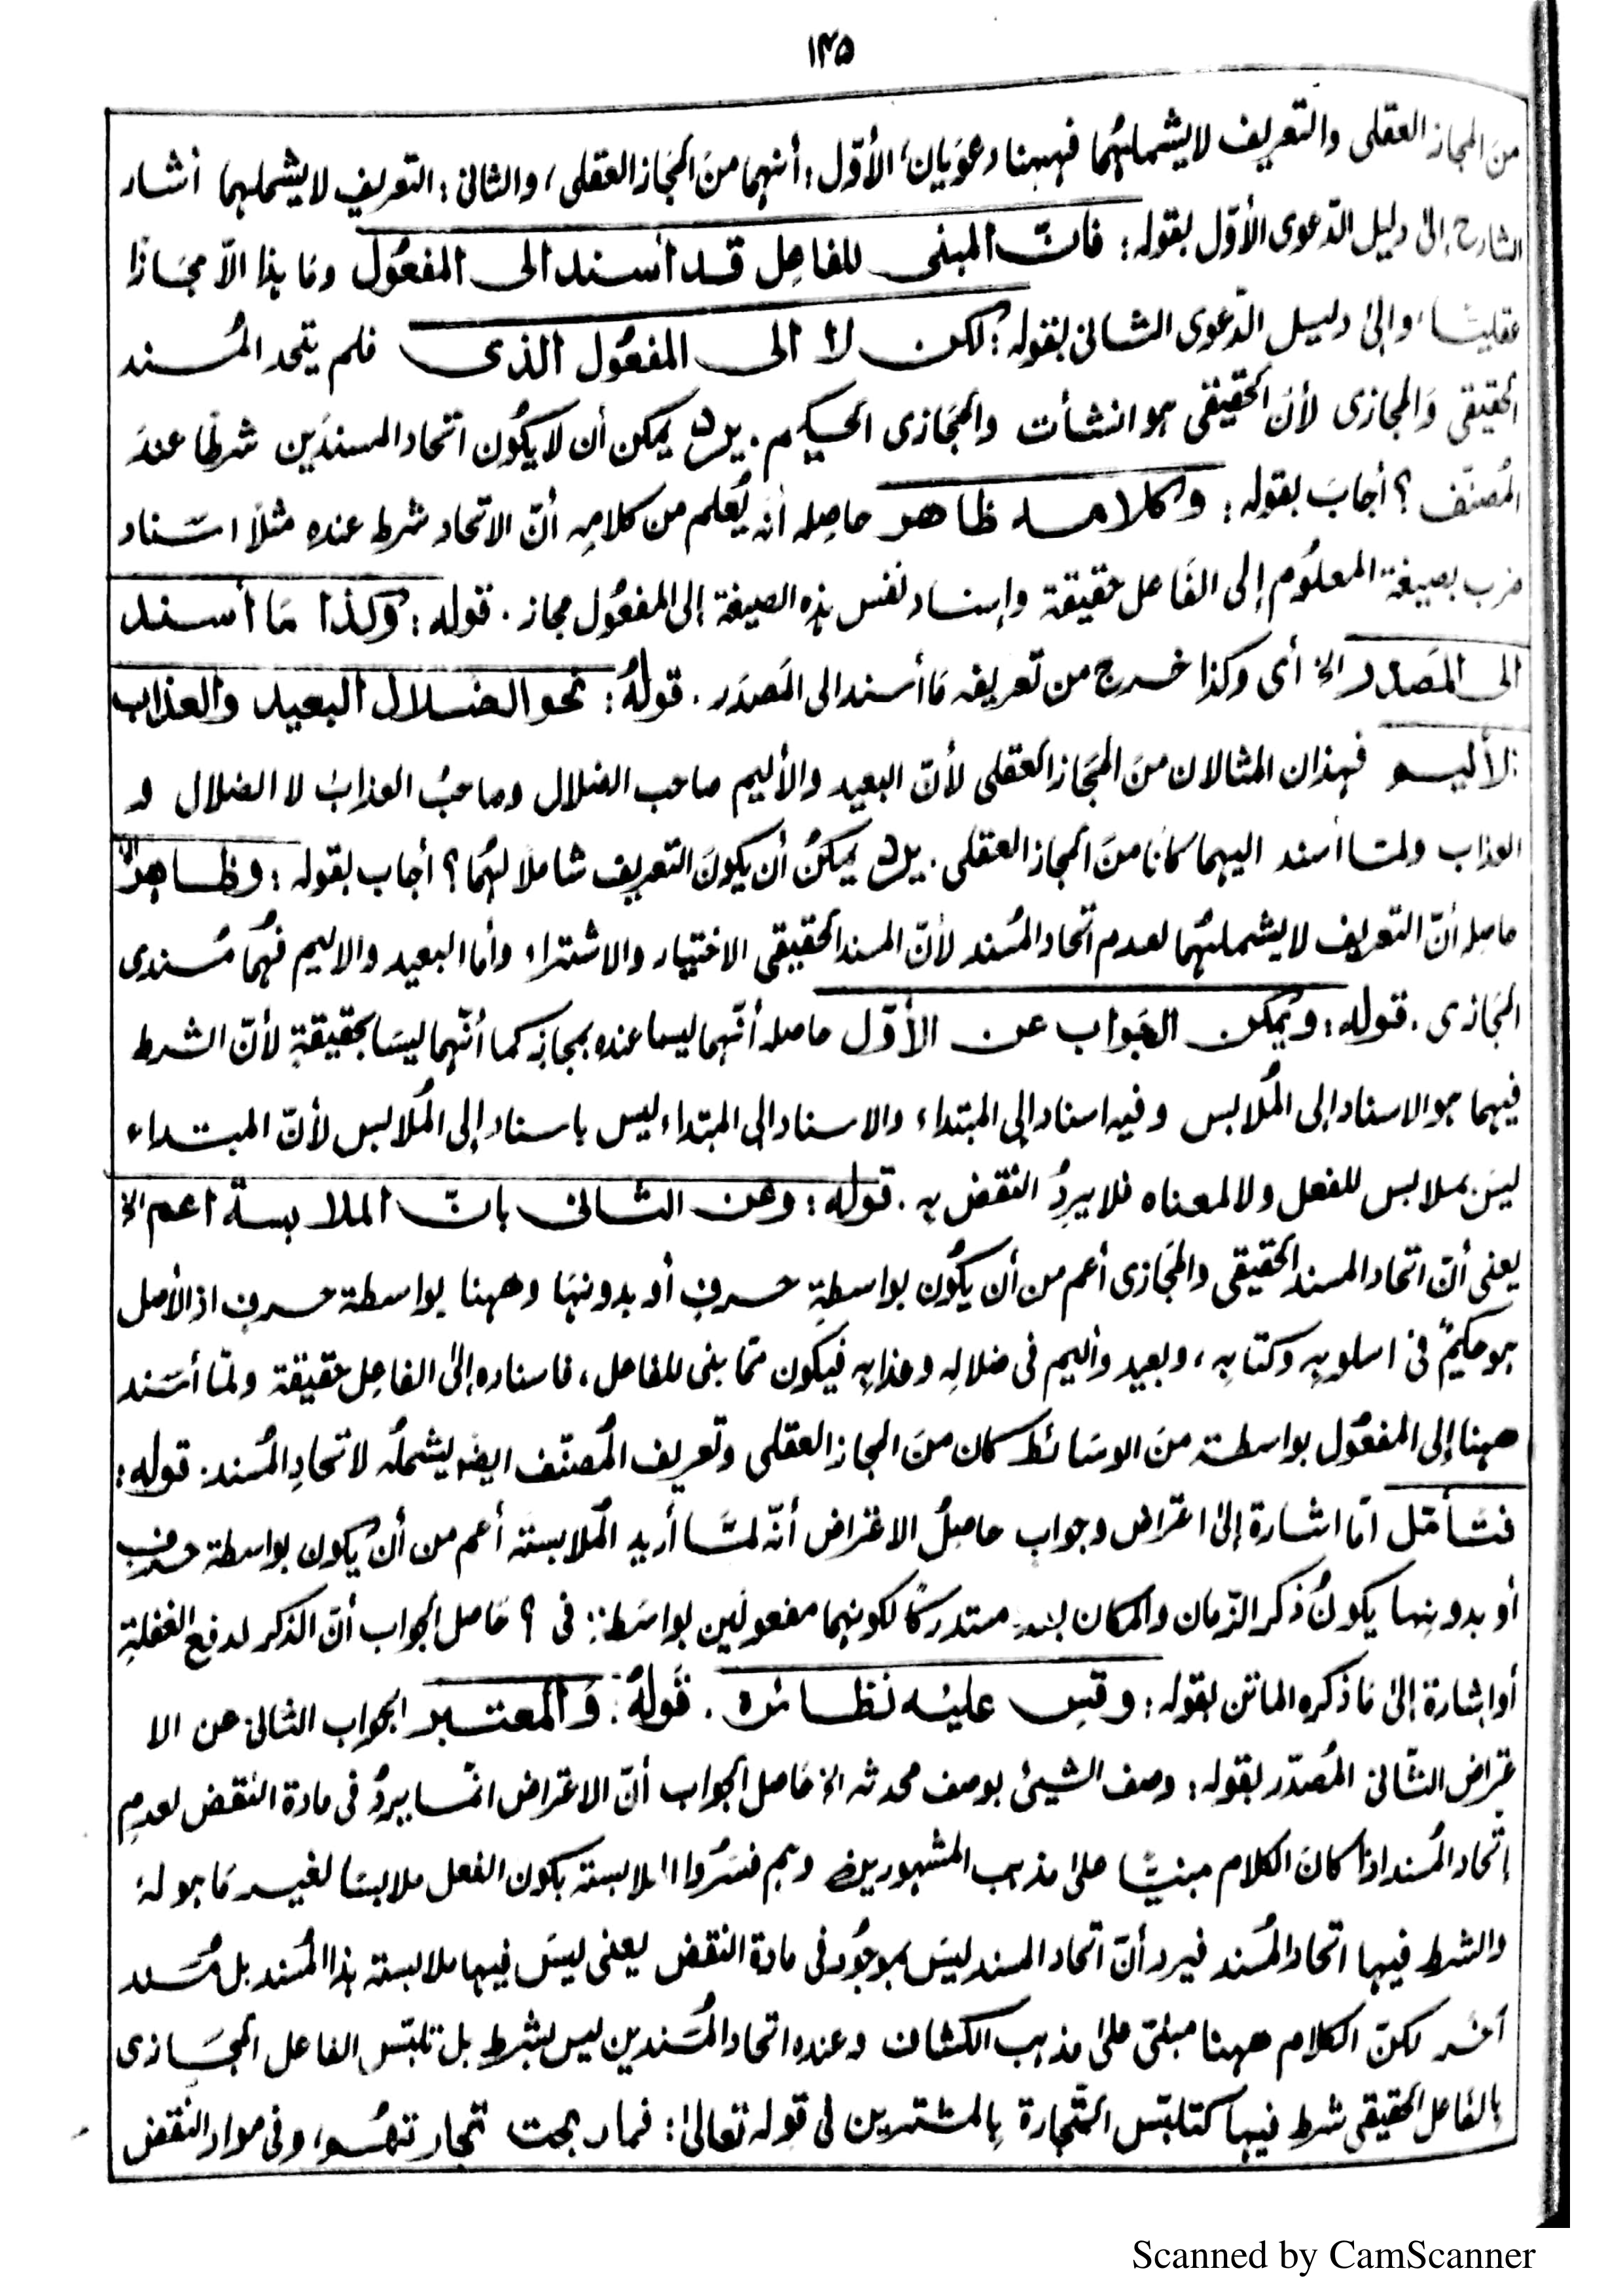 ١٣٥
من المجاز العقلى والتعريف لايشملهُما فههنا دعوَيان، الأوّل: أنهما منَ المجَاز العقلى، والثانى: التعريف لايشملهما أشار
الشارح إلى دليل الدّعوى الأوّل بقوله: فانّ المبنى للفاعِل قد أسند الى المفعُول ومَا هذا الاّ مجَازًا
عقليًا، وإلىٰ دليل الدّعوى الثانى بقوله: لكن لا الى المفعُول الذى فلم يتحد المُسند
الحقيقى وَالمجازى لأنّ الحقيقى هو انشأت والمجَازى الحكيم. يمكن أن لا يكُون اتحاد المسندَين شرطًا عندَ
المُصنّف؟ أجابَ بقوله: وكلامه ظاهر حاصله أنه يُعلم من كلامِه أنّ الاتحاد شرط عنده مثلاً اسناد
ضرب بصيغة المعلُوم إلى الفَاعل حقيقة وإسناد نفس هذه الصيغة إلى المفعُول مجاز. قوله: وكذا مَا أسند
الى المَصدر الخ أى وكذا خرج من تعريفه مَا أسند الى المَصدَر. قولهُ: نحو الضلال البعيد والعذاب
الأليم فهذان المثالان منَ المجَاز العقلى لأنّ البعيد والأليم صاحب الضلال وصاحبُ العذاب لا الضلال و
العذاب ولمّا أسند اليهما كانَا منَ المجاز العقلى. يمكنُ أن يكونَ التعريف شاملاً لهُمَا؟ أجاب بقوله: وظاهر الخ
حاصله أنّ التعريف لا يشملهُما لعدم اتحاد المُسند لأنّ المسند الحقيقى الاختيار والاشتراء وأما البعيد والاليم فهُمَا مُسندى
المجَازى. قوله: ويُمكن الجَواب عن الأوّل حاصله أنّهما ليسا عنده بمجاز كما أنّهما ليسَا بحقيقةٍ لأنّ الشرط
فيهما هو الاسناد إلى المُلابس وفيه اسناد إلى المبتداء والاسناد إلى المبتداء ليس باسناد إلى المُلابس لأنّ المبتداء
ليسَ بملابس للفعل ولا لمعناه فلا يرِدُ النقض به. قوله: وعن الثانى بانّ الملابسة اعم الخ
يعنى أنّ اتحاد المسند الحقيقى والمجَازى أعم من أن يكُون بواسطةِ حرفٍ أو بدونهَا وههنا بواسطة حرف اذ الأصل
هو حكيمٌ فى اسلوبِه وكتابِه، وبعيد وأليم فى ضلالِه وعذابِه فيكون ممّا بنى للفاعل، فاسناده إلىٰ الفاعِل حقيقة ولمّا أسند
ههنا إلى المفعُول بواسطة منَ الوسَائط كان منَ المجاز العقلى وتعريف المُصنّف ايضًا يشملُه لاتحادِ المُسند. قوله:
فتَأمّل امّا اشارة إلىٰ اعتراض وجواب حاصلُ الاعتراض أنّه لمّا أريد المُلابسَة أعم من أن يكون بواسطة حرف
أو بدونِها يكونُ ذكر الزّمان والمكان مستدركًا لكونهما مفعولَين بواسَطة فى؟ حَاصل الجواب أنّ الذكر لدفع الغفلةِ
أو اشارة إلىٰ مَا ذكره الماتن بقوله: وقِس عليه نظائره. قولهُ: وَالمعتبر الجواب الثانى عن الا
عتراض الثّانى المُصدّر بقوله: وصف الشيئ بوصف محدثه الخ حَاصل الجواب أنّ الاعتراض انّما يردُ فى مادة النقض لعدمِ
إتّحاد المُسند اذا كانَ الكلام مبنيًا علىٰ مذهب المشهورين وهم فسّرُوا الملابسة بكون الفعل ملابسًا لغير مَا هو لهُ
والشرط فيها اتحاد المُسند فيرد أنّ اتحاد المسند ليسَ بموجُود فى مادة النقض يعنى ليسَ فيها ملابسة هذا المُسند بل مُسند
آخر لكنّ الكلام ههنا مبنىّ علىٰ مذهب الكشاف وعنده اتحاد المُسندين ليس بشرطٍ بل تلبّس الفاعل المجَازى
بالفَاعل الحقيقى شرط فيها كتلبّس التّجارة بِالمشترين فى قوله تعالىٰ: فما ربحت تجارتهُم، وفى مواد النّقض
Scanned by CamScanner